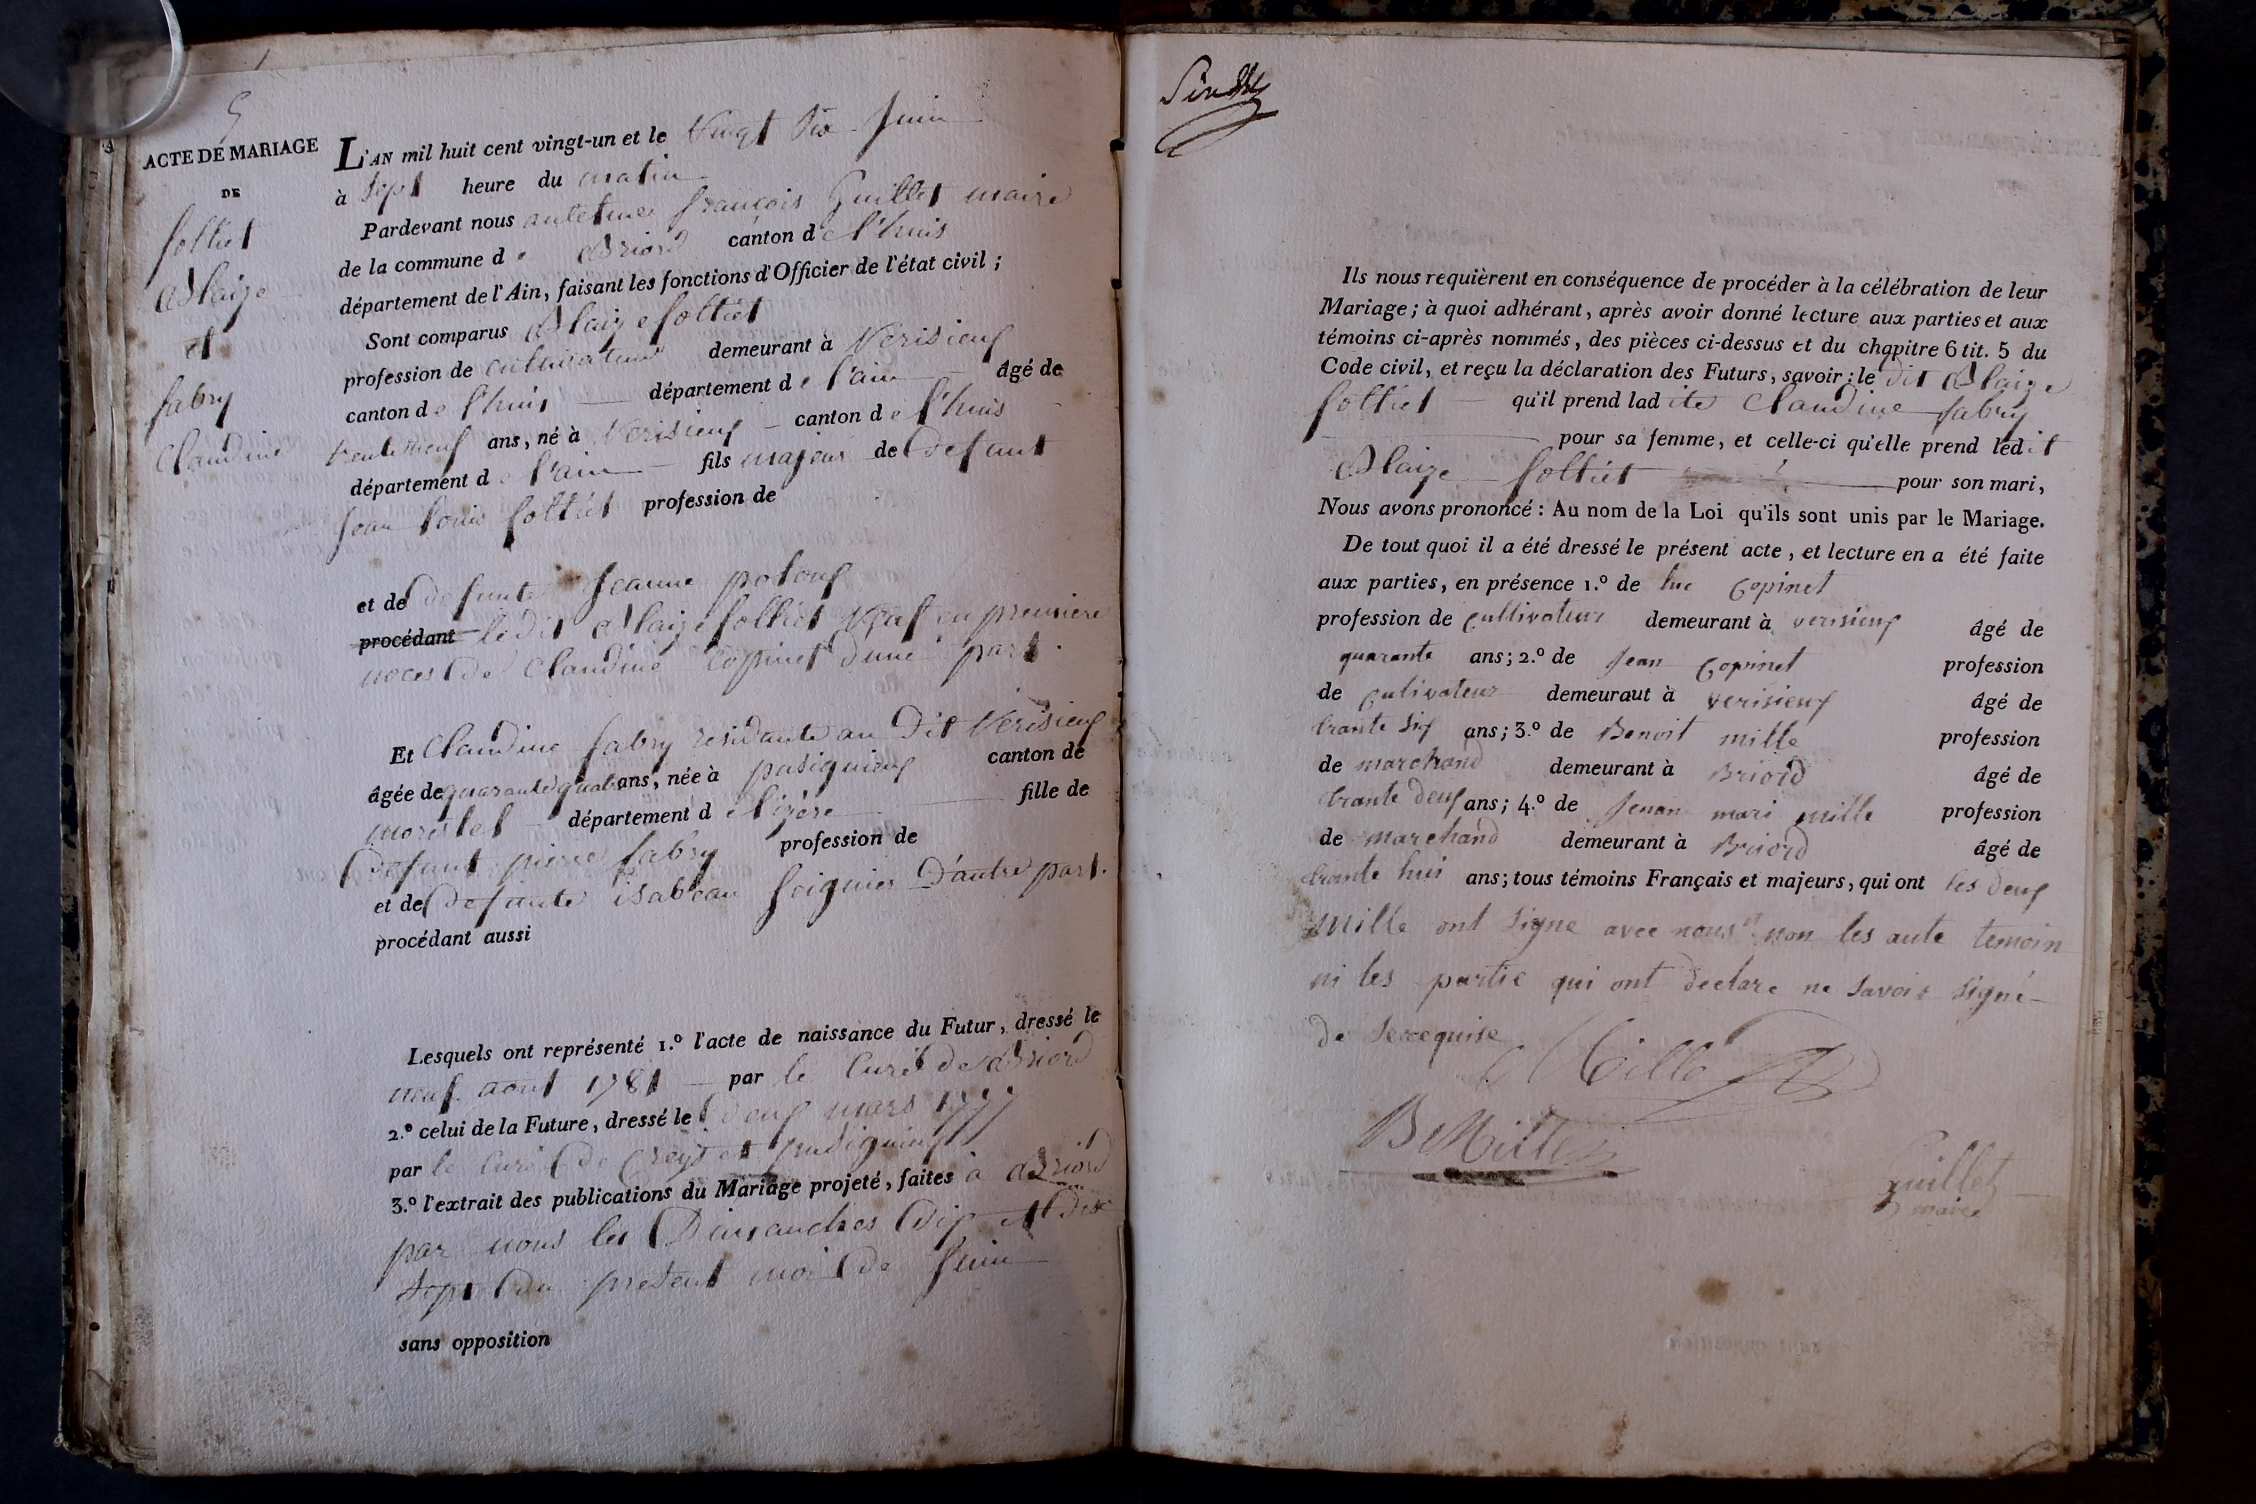 5
ACTE DE MARIAGE
DE
folliet
Blaize
et
fabry
Claudine
L'AN mil huit cent vingt-un et le Vingt Six Juin
à Sept heure du matin
Pardevant nous antelme françois Guillet maire
de la commune de Briord canton de l'huis
département de l'Ain, faisant les fonctions d'Officier de l'état civil ;
Sont comparus Blaize folliet
profession de cultivateur demeurant à Verisieuf
canton de l'huis département de l'ain âgé de
trente neuf ans, né à Verisieuf canton de l'huis
département de l'ain fils majeur de Defunt
Jean Louis folliet profession de
et de defunte Jeanne
procédant le dit Blaize folliet veaf en premiere
noces de Claudine Copinet dune part.
Et Claudine fabry residante au Dit Verisieuf
âgée de quarante quatre ans, née à pusignieuf canton de
morestel département de l'izère fille de
Defunt pierre fabry profession de
et de Defunte isabeau Soignier D'autre part.
procédant aussi
Lesquels ont représenté 1.º l'acte de naissance du Futur, dressé le
neuf aout 1781 par le Curé de Briord
2.º celui de la Future, dressé le Deuf mars 1777
par le Curé de Creyt et pusignieuf
3.º l'extrait des publications du Mariage projeté, faites à Briord
par nous les Dimanches Dip et Dix
Sept du present moi de Juin
sans opposition
Ils nous requièrent en conséquence de procéder à la célébration de leur
Mariage; à quoi adhérant, après avoir donné lecture aux parties et aux
témoins ci-après nommés, des pièces ci-dessus et du chapitre 6 tit. 5 du
Code civil, et reçu la déclaration des Futurs, savoir : le dit Blaize
folliet qu'il prend ladite Claudine fabry
pour sa femme, et celle-ci qu'elle prend ledit
Blaize folliet pour son mari,
Nous avons prononcé : Au nom de la Loi qu'ils sont unis par le Mariage.
De tout quoi il a été dressé le présent acte, et lecture en a été faite
aux parties, en présence 1.º de luc Copinet
profession de Cultivateur demeurant à verisieuf âgé de
quarante ans; 2.º de Jean Copinet profession
de Cultivateur demeuraut à verisieuf âgé de
trante Sif ans; 3.º de Benoit mille profession
de marchand demeurant à Briord âgé de
trante deuf ans; 4.º de Jenan mari mille profession
de marchand demeurant à Briord âgé de
trante huis ans; tous témoins Français et majeurs, qui ont les deuf
mille ont signe avec nous et non les aute temoin
ni les partie qui ont declare ne savoir signé
de
Mille
B Mille
guillet
maire